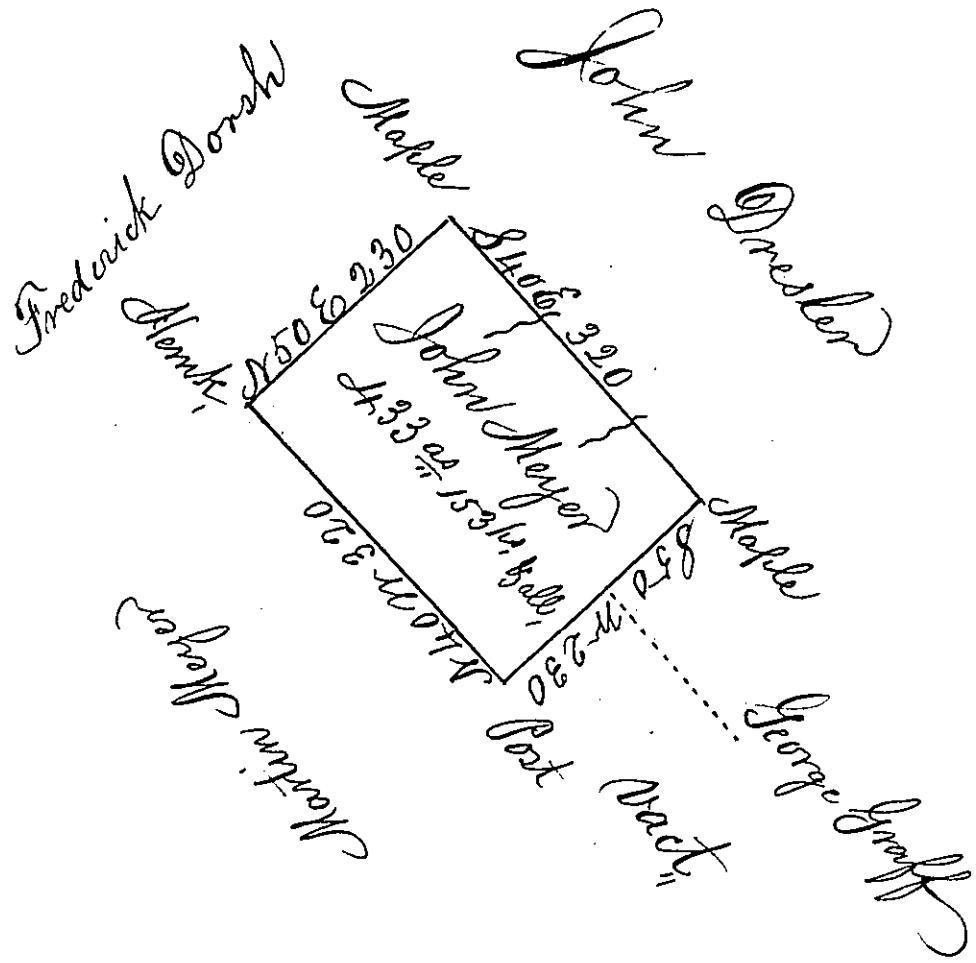 Frederick Dorsh
Maple
John Dresler
Hemk,
N50 E 230
S40E, 320
John Meyer
433 as 153 ps & all,
Maple
S50 W 230
N40 W 320
Post
Martin Meyer
Vact,
George Graff